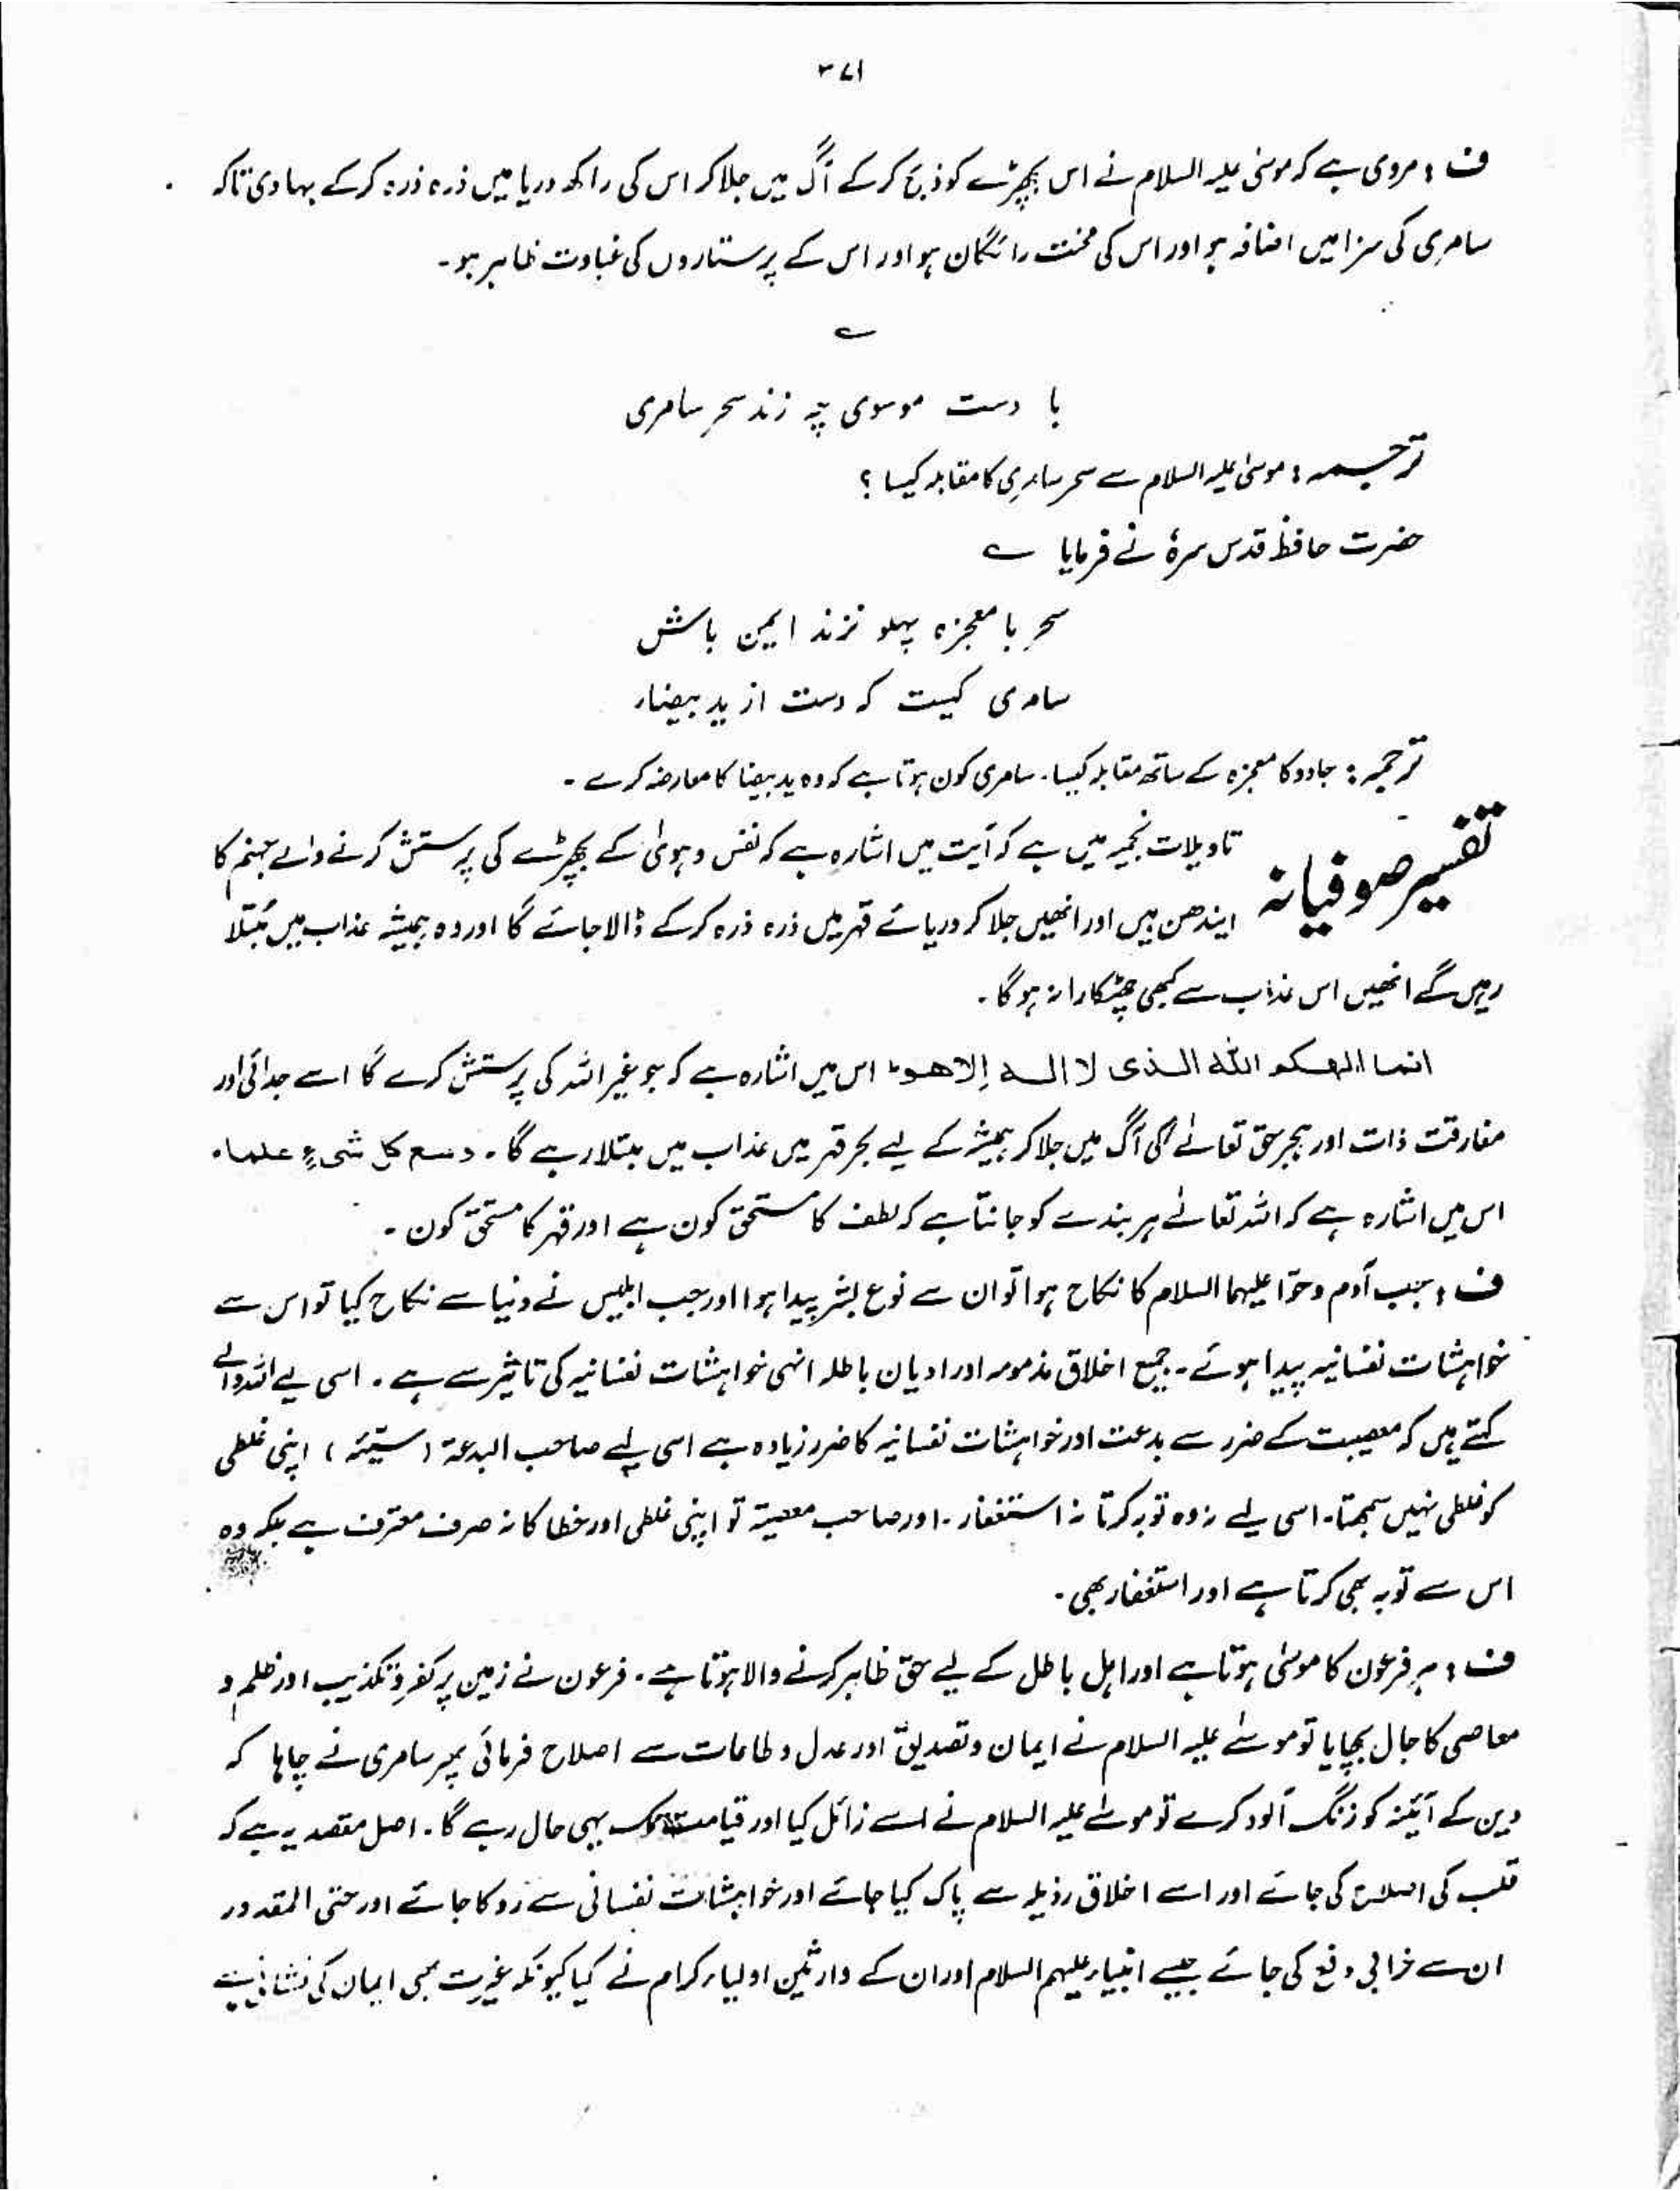 ۳۷۱
ف : مروی ہے کہ موسیٰ علیہ السلام نے اس بچھڑے کو ذبح کرکے آگ میں جلا کر اس کی راکھ دریا میں ذرہ ذرہ کرکے بہا دی تاکہ
سامری کی سزا میں اضافہ ہو اور اس کی محنت رائگان ہو اور اس کے پرستاروں کی غباوت ظاہر ہو۔
؎
با دست موسوی چہ زند سحرِ سامری
ترجمہ : موسیٰ علیہ السلام سے سحر سامری کا مقابلہ کیسا ؟
حضرت حافظ قدس سرہٗ نے فرمایا ؎
سحر با معجزہ پہلو نزند ایمن باش
سامری کیست کہ دست از ید بیضاء
ترجمہ : جادو کا معجزہ کے ساتھ مقابلہ کیسا۔ سامری کون ہوتا ہے کہ وہ ید بیضا کا معارضہ کرے ۔
تفسیر صوفیانہ
تاویلات نجمیہ میں ہے کہ آیت میں اشارہ ہے کہ نفس و ہویٰ کے بچھڑے کی پرستش کرنے والے جہنم کا
ایندھن ہیں اور انھیں جلا کر دریائے قہر میں ذرہ ذرہ کرکے ڈالا جائے گا اور وہ ہمیشہ عذاب میں مُبتلا
رہیں گے انھیں اس عذاب سے کبھی چھٹکارا نہ ہو گا۔
انما الٰھکم اللّٰہ الذی لا الہ إلا ھو ط اس میں اشارہ ہے کہ جو غیر اللہ کی پرستش کرے گا اسے جدائی اور
مفارقت ذات اور ہجر حق تعالےٰ کی آگ میں جلا کر ہمیشہ کے لیے بحرِ قہر میں عذاب میں مبتلا رہے گا۔ وسع کل شیءٍ علماء
اس میں اشارہ ہے کہ اللہ تعالےٰ ہر بندے کو جانتا ہے کہ لطف کا مستحق کون ہے اور قہر کا مستحق کون ۔
ف : جب آدم و حوّا علیہما السلام کا نکاح ہوا تو ان سے نوع بشر پیدا ہوا اور جب ابلیس نے دنیا سے نکاح کیا تو اس سے
خواہشات نفسانیہ پیدا ہوئے۔ جمیع اخلاق مذمومہ اور ادیان باطلہ انہی خواہشات نفسانیہ کی تاثیر سے ہے ۔ اسی لیے اللہ والے
کہتے ہیں کہ معصیت کے ضرر سے بدعت اور خواہشات نفسانیہ کا ضرر زیادہ ہے اسی لیے صاحب البدعۃ ( سیئہ ) اپنی غلطی
کو غلطی نہیں سمجھتا۔ اسی لیے نہ وہ توبہ کرتا نہ استغفار ۔ اور صاحب معصیۃ تو اپنی غلطی اور خطا کا نہ صرف معترف ہے بلکہ وہ
اس سے توبہ بھی کرتا ہے اور استغفار بھی۔
ف : ہر فرعون کا موسیٰ ہوتا ہے اور اہل باطل کے لیے حق ظاہر کرنے والا ہوتا ہے ۔ فرعون نے زمین پر کفر و تکذیب اور ظلم و
معاصی کا جال بچھایا تو موسےٰ علیہ السلام نے ایمان و تصدیق اور عدل و طاعات سے اصلاح فرمائی پھر سامری نے چاہا کہ
دین کے آئینہ کو زنگ آلود کرے تو موسےٰ علیہ السلام نے اسے زائل کیا اور قیامت تک یہی حال رہے گا۔ اصل مقصد یہ ہے کہ
قلب کی اصلاح کی جائے اور اسے اخلاق رذیلہ سے پاک کیا جائے اور خواہشات نفسانی سے روکا جائے اور حتی المقدور
ان سے خرابی دفع کی جائے جیسے انبیاء علیہم السلام اور ان کے وارثین اولیاء کرام نے کیا کیونکہ غیرت بھی ایمان کی نشانی ہے